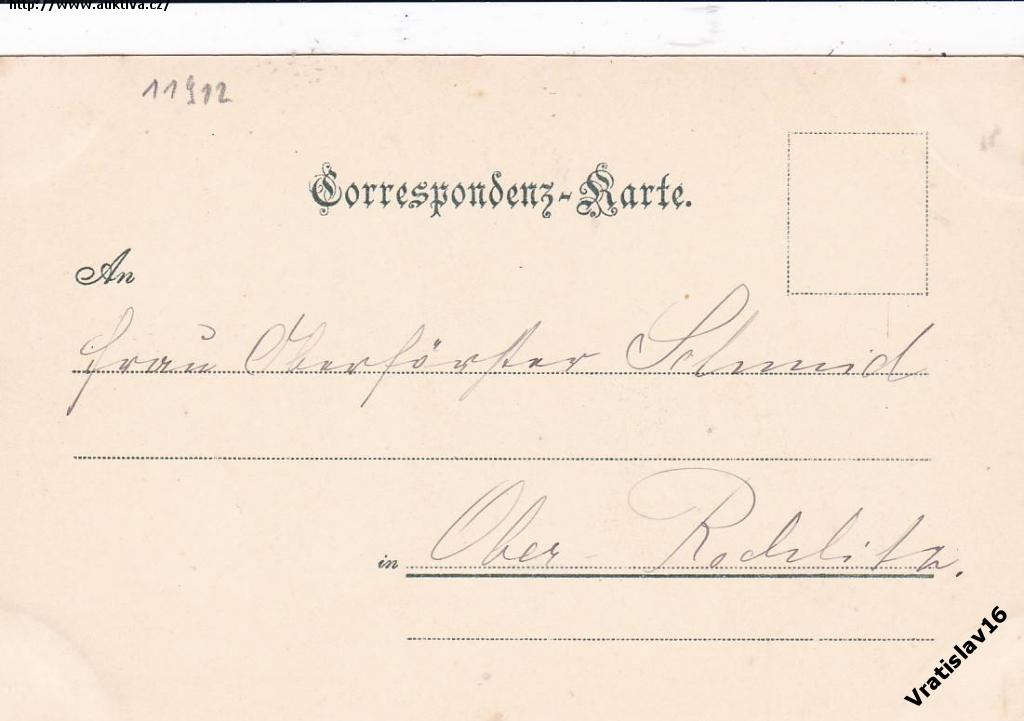 http://www.auktiva.cz/
11912
Correspondenz-Karte.
An
Frau Oberförster Schmid
in Ober-Rochlitz.
Vratislav16